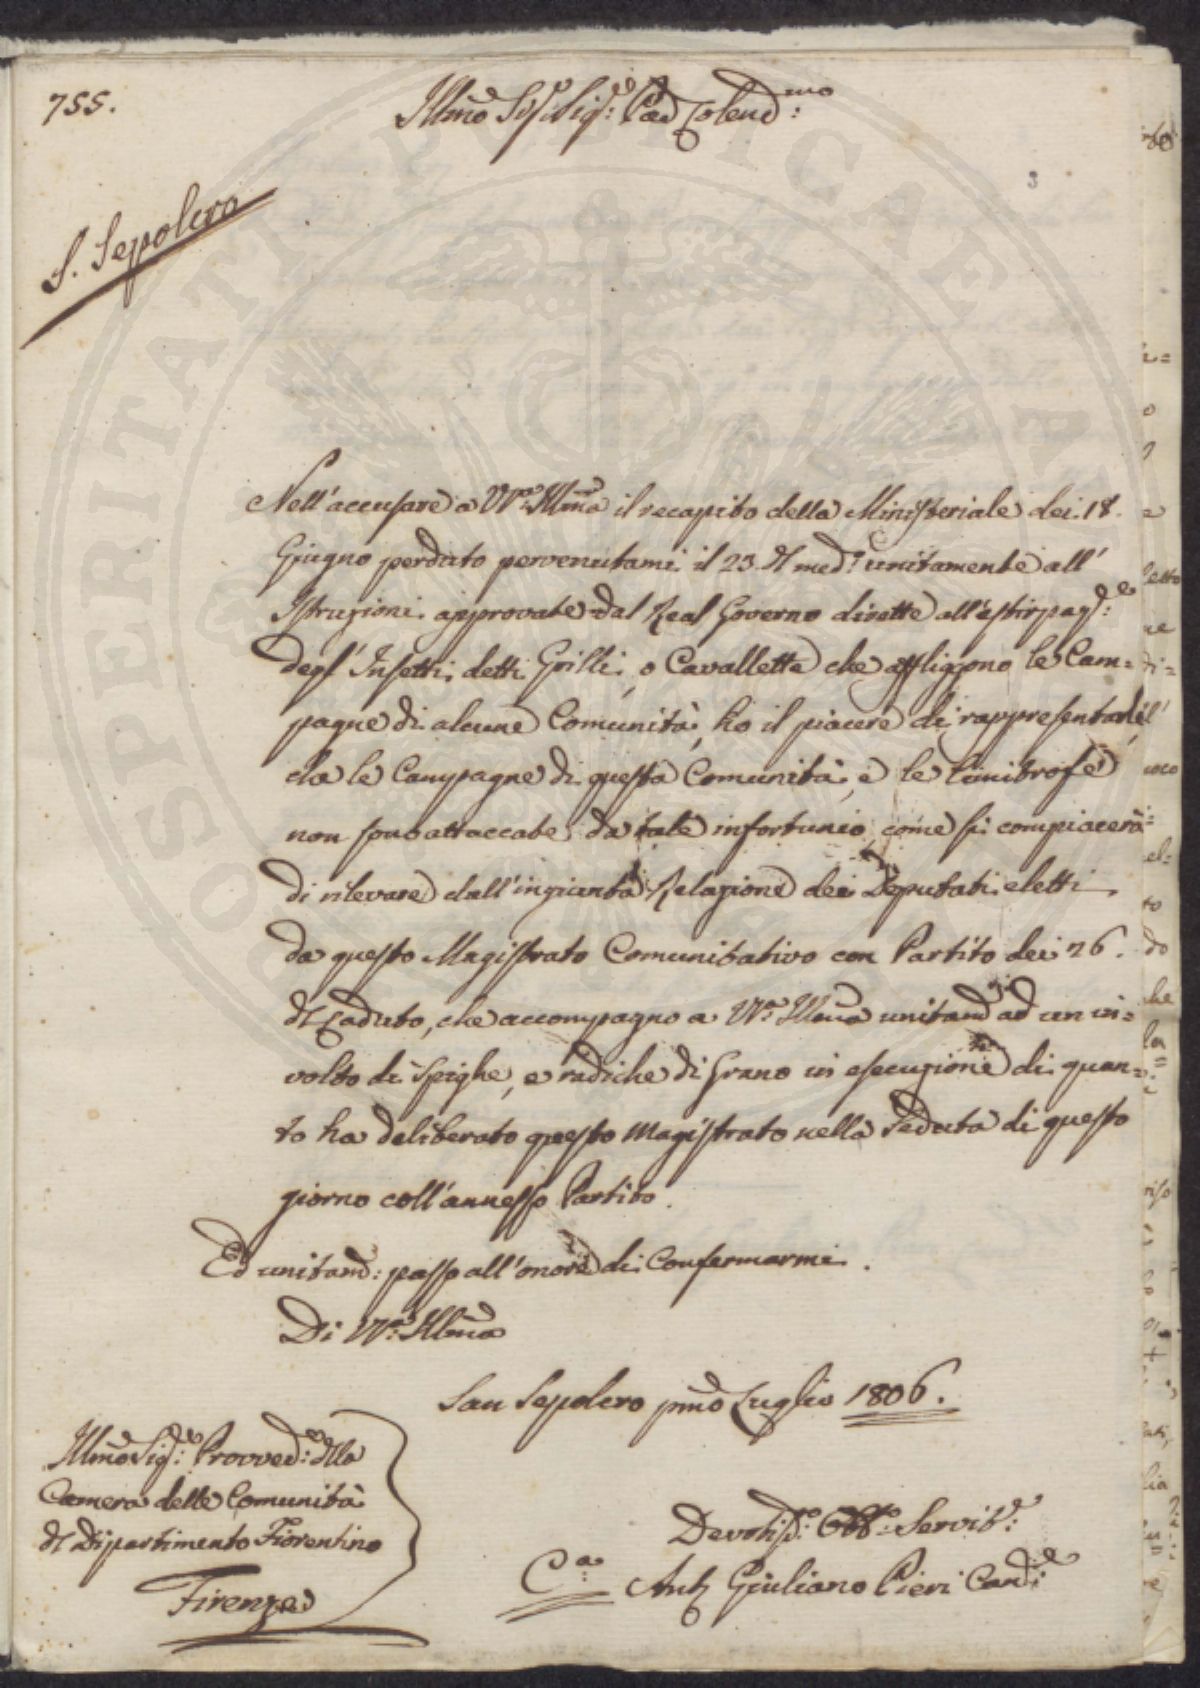 755.
Illmo Sig. Sig: Pad Colend:mo
3
S. Sepolcro
Nell'accusare a VS: Illma il recapito della Ministeriale dei 18.
Giugno perduto pervenutami il 23. d med: unitamente all'
Istruzioni approvate dal Real Governo dirette all'estirpaz:e
degl'Insetti detti Grilli, o Cavallette che affliggono le Cam=
pagne di alcune Comunità, ho il piacere di rappresentarle
che le Campagne di questa Comunità, e le limitrofe
non sono attaccate da tale infortunio, come si compiacerà
di rilevare dall'ingiunta Relazione dei Deputati eletti
da questo Magistrato Comunitativo con Partito dei 26.
d Caduto, che accompagno a VS: Illma unitam ad un in=
volto di Spighe, e radiche di Grano in esecuzione di quan=
to ha deliberato questo Magistrato nella Seduta di questo
giorno coll'annesso Partito.
Ed unitam: passo all'onore di Confermarmi.
Di VS: Illma
San Sepolcro pmo Luglio 1806.
Illmo Sig: Provved: dlla
Camera delle Comunità
dl Dipartimento Fiorentino
Firenze
Devotis: Obb: Servit:
C:a Ant Giuliano Pieri Canc
PROSPERITATI PUBLICAE